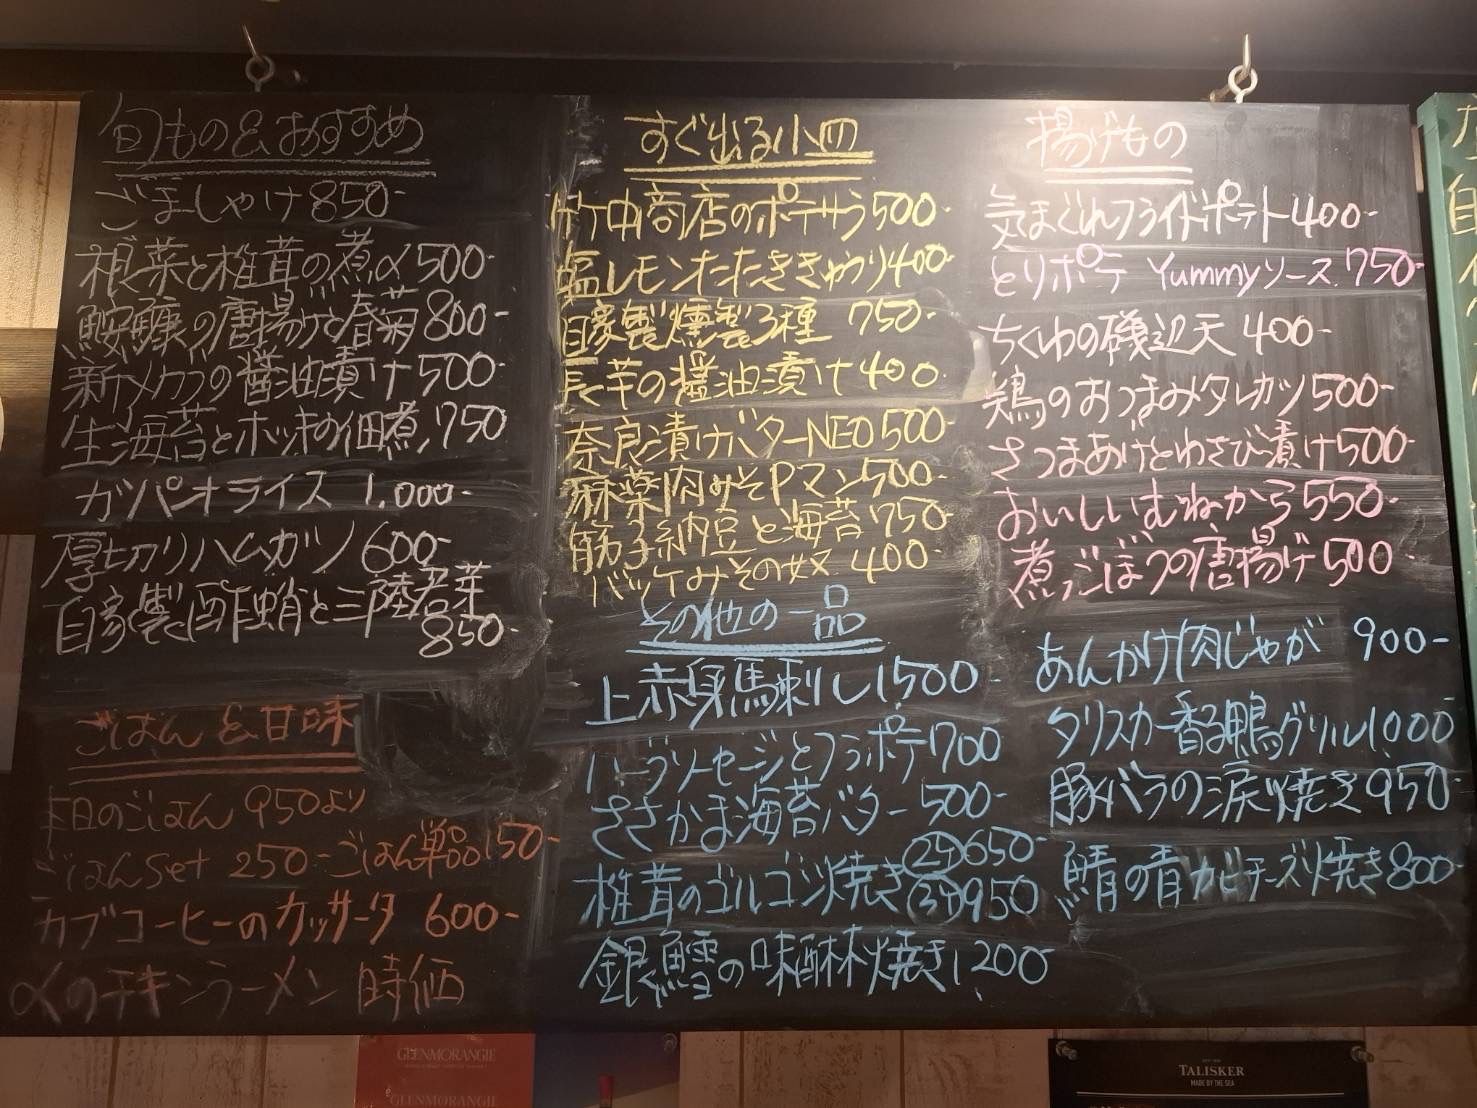 旬もの&おすすめ
ごましゃけ850-
根菜と椎茸の煮〆500-
鮟鱇の唐揚げと春菊800-
新メカブの醤油漬け500-
生海苔とホッキの佃煮750
ガツパオライス 1,000-
厚切りハムカツ600-
自家製〆酢蛸と三陸若芽
850-
ごはん&甘味
本日のごはん 950より
ごはんset 250- ごはん単品150-
カブコーヒーのカッサータ 600-
〆のチキンラーメン 時価
すぐ出る小皿
竹中商店のポテサラ500-
塩レモンたたききゅうり400-
自家製燻製3種 750-
長芋の醤油漬け400
奈良漬けバターNEO500
麻薬肉みそPマン500-
筋子納豆と海苔750-
バッケみその奴 400-
その他の一品
上赤身馬刺し1,500-
ハーブソーセージとフラポテ700
ささかま海苔バター500-
椎茸のゴルゴンゾーラ焼き(2ケ)650-
(3ケ)950
銀鱈の味醂焼き1,200-
揚げもの
気まぐれフライドポテト400-
とりポテ Yummyソース.750-
ちくわの磯辺天 400-
鶏のおつまみタレカツ500-
さつまあげとわさび漬け500-
おいしいむねから550-
煮ごぼうの唐揚げ500
あんかけ肉じゃが 900-
タリスカー香る鴨グリル1,000
豚バラの涙焼き950-
鯖の青カビチーズ焼き800-
GLENMORANGIE
GLENMORANGIE
TALISKER
MADE BY THE SEA